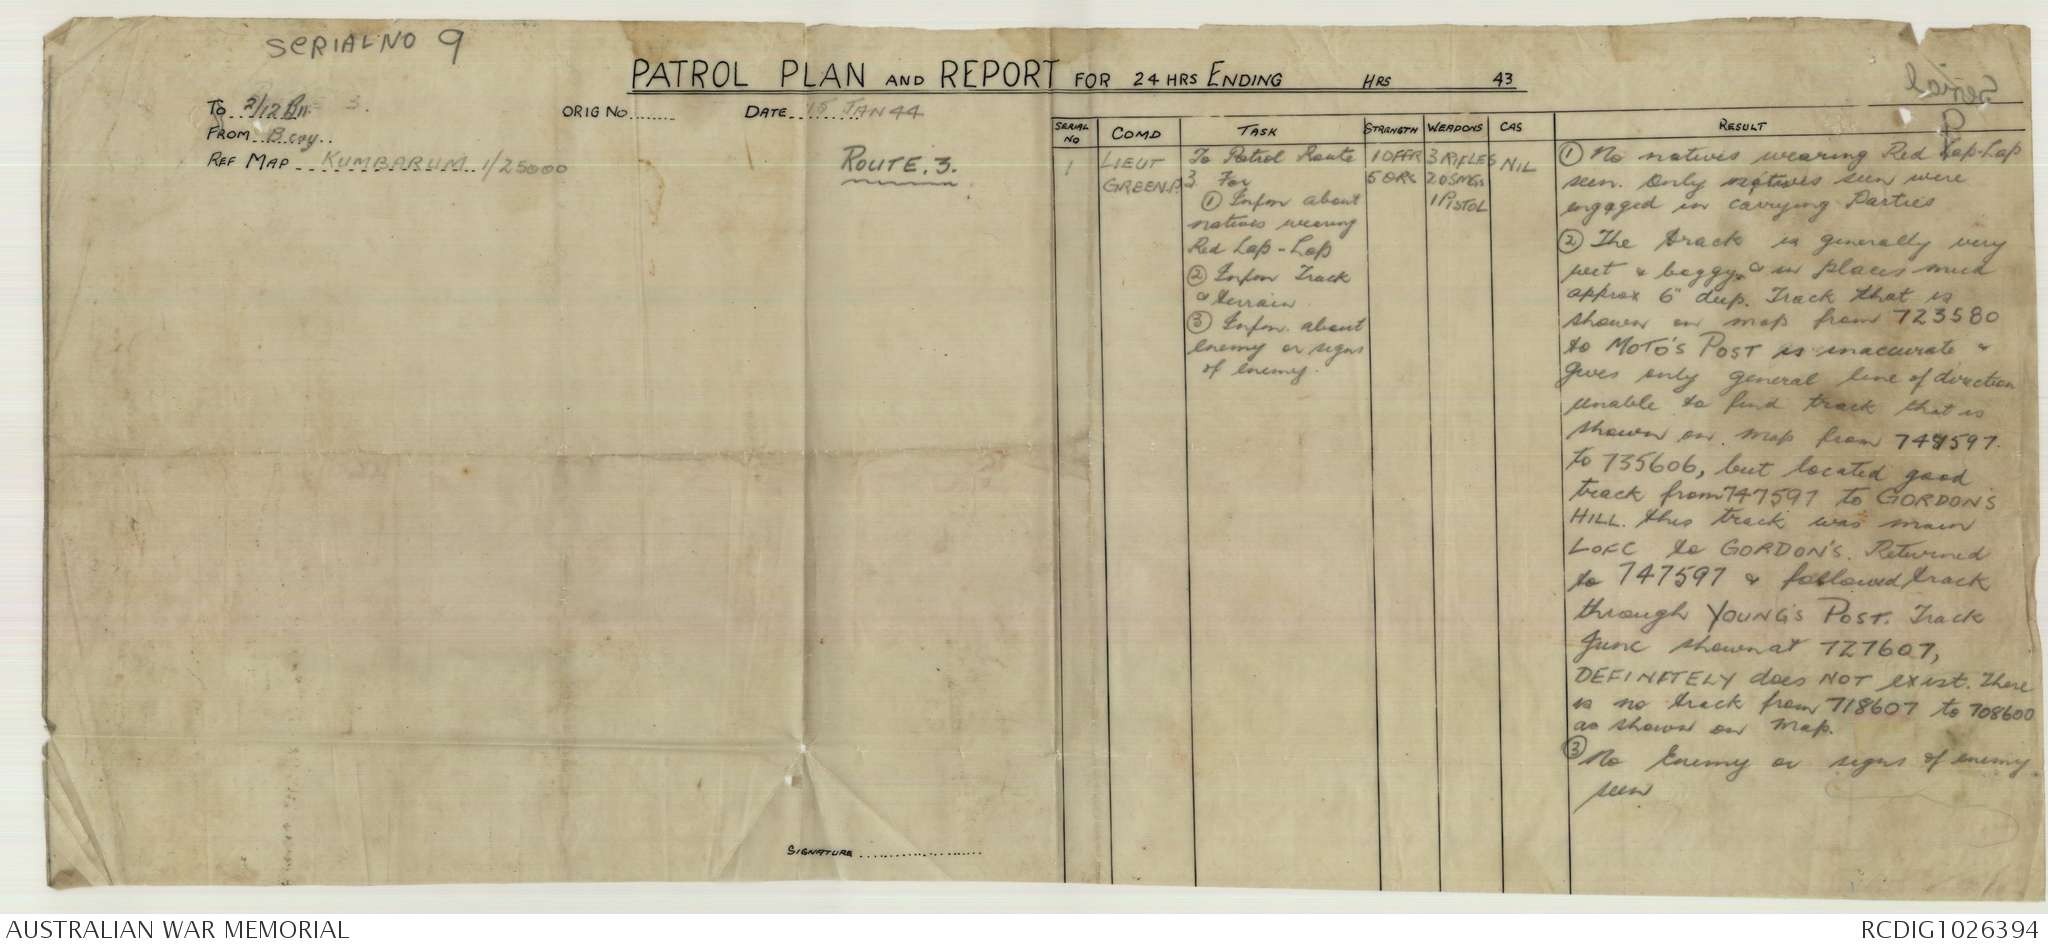 SERIAL NO 9
PATROL PLAN AND REPORT FOR 24 HRS ENDING HRS 43
To 2/12 Bn 3.
ORIG No........
DATE 15 JAN 44
FROM B coy
REF MAP KUMBARUM 1/25000
ROUTE. 3.
SIGNATURE ......................
Serial
9
SERIAL NO
COMD
TASK
STRENGTH
WEAPONS
CAS
RESULT
1
LIEUT
GREEN.
To Patrol Route
3 For
① Infm about
natives wearing
Red Lap-Lap
② Infm Track
& terrain
③ Infm. about
enemy or signs
of enemy.
1 OFFR
5 ORs
3 RIFLES
2 OSMGs
1 PISTOL
NIL
① No natives wearing Red Lap-Lap
seen. Only natives seen were
engaged in carrying Parties
② The track is generally very
wet & boggy & in places mud
approx 6" deep. Track that is
shown on map from 723580
to MOTO'S POST is inaccurate &
gives only general line of direction
unable to find track that is
shown on map from 747597.
to 735606, but located good
track from 747597 to GORDON'S
HILL. this track was main
L of C to GORDON'S. Returned
to 747597 & followed track
through YOUNG'S POST. Track
junc shown at 727607,
DEFINATELY does NOT exist. There
is no track from 718607 to 708600
as shown on map.
③ No Enemy or signs of enemy
seen
AUSTRALIAN WAR MEMORIAL
RCDIG1026394